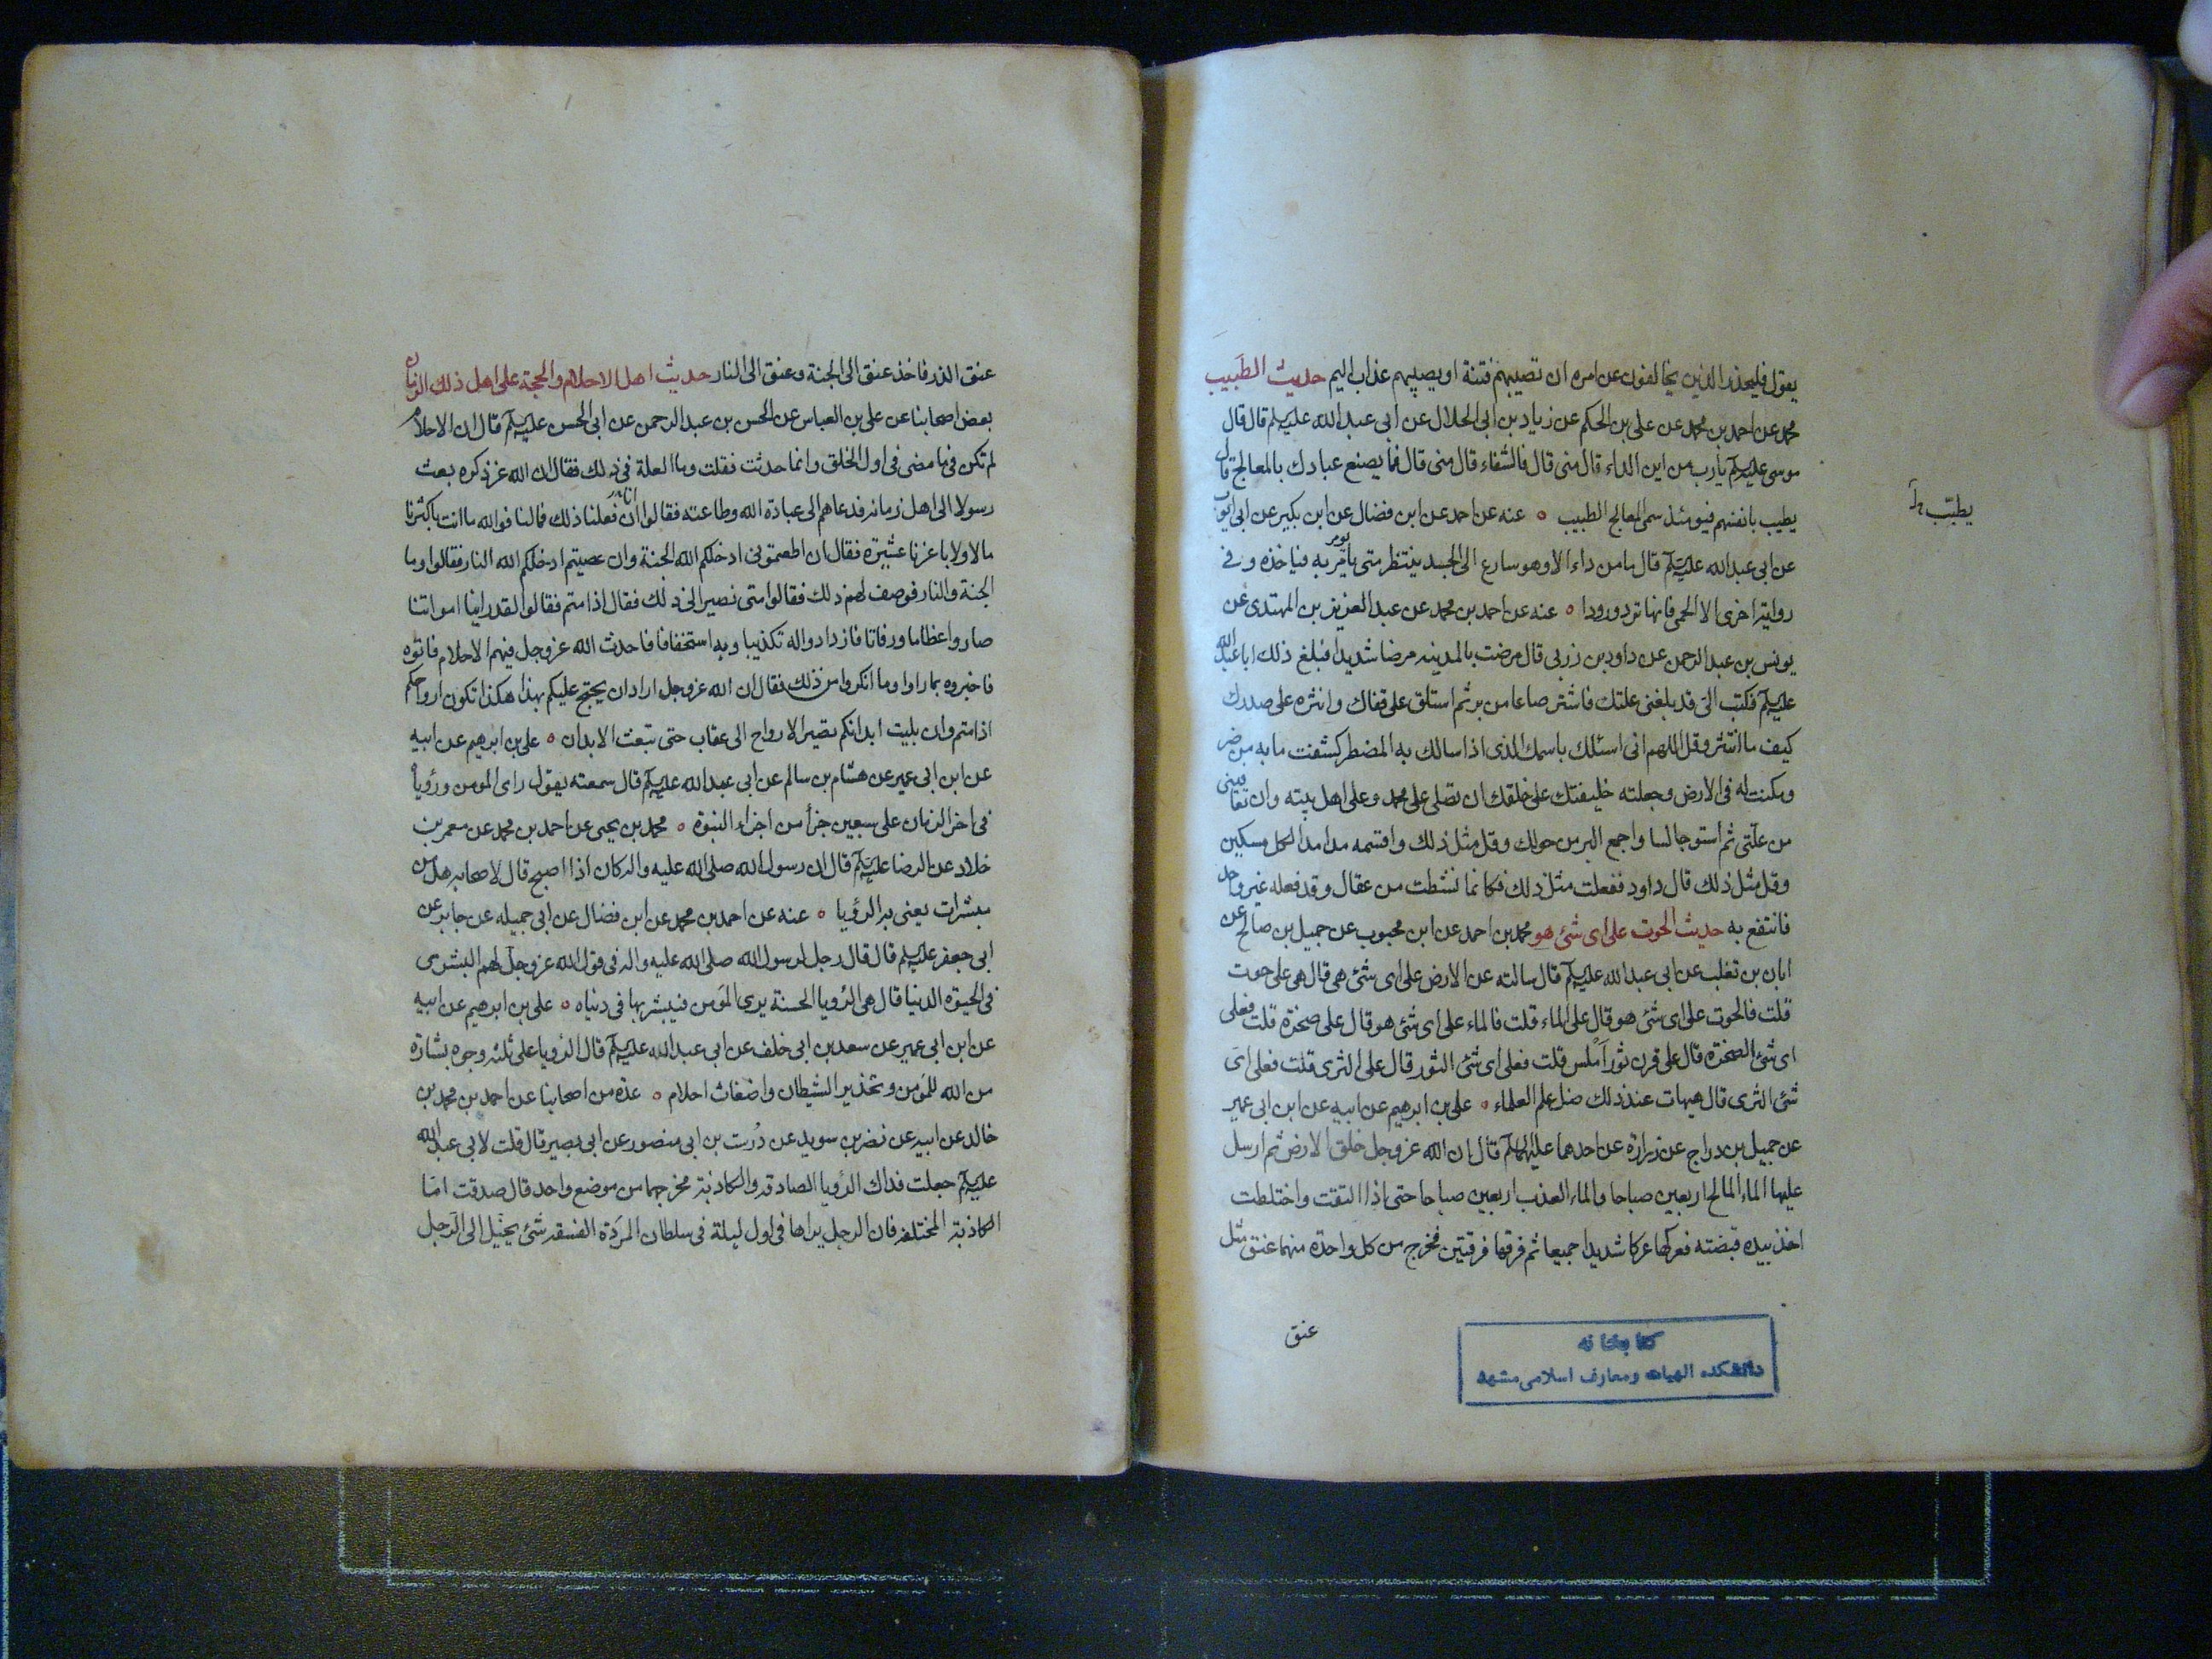 يقول فليحذر الذين يخالفون عن امره ان تصيبهم فتنة او يصيبهم عذاب اليم حديث الطبيب
محمد عن احمد بن محمد عن علي بن الحكم عن زياد بن ابي الحلال عن ابي عبد الله عليه السلم قال قال
موسى عليه السلم يارب من اين الداء قال مني قال فالشفاء قال مني قال فما يصنع عبادك بالمعالج قال
يطيب بانفسهم فيومئذ سمى المعالج الطبيب ه عنه عن احمد عن ابن فضال عن ابن بكير عن ابي ايوب
يطبّب
عن ابي عبد الله عليه السلم قال ما من داء الا وهو سارع الى الجسد ينتظر متى يؤمر به فياخذه وفي
رواية اخرى الا الحمى فانها ترد ورودا ه عنه عن احمد بن محمد عن عبد العزيز بن المهتدى عن
يونس بن عبد الرحمن عن داود بن زربي قال مرضت بالمدينه مرضا شديدا فبلغ ذلك ابا عبد الله
عليه السلم فكتب الىّ قد بلغني علتك فاشتر صاعا من بر ثم استلق على قفاك وانثره على صدرك
كيف ما انتثر وقل اللهم اني اسئلك باسمك الذى اذا سالك به المضطر كشفت ما به من ضر
ومكنت له في الارض وجعلته خليفتك على خلقك ان تصلي على محمد وعلى اهل بيته وان تعافيني
من علّتي ثم استو جالسا واجمع البر من حولك وقل مثل ذلك واقسمه مدا مدا لكل مسكين
وقل مثل ذلك قال داود ففعلت مثل ذلك فكانما نشطت من عقال وقد فعله غير واحد
فانتفع به حديث الحوت على اى شئ هو محمد بن احمد عن ابن محبوب عن جميل بن صالح عن
ابان بن تغلب عن ابي عبد الله عليه السلم قال سالته عن الارض على اى شئ هي قال هي على حوت
قلت فالحوت على اى شئ هو قال على الماء قلت فالماء على اى شئ هو قال على صخرة قلت فعلى
اى شئ الصخرة قال على قرن ثور املس قلت فعلى اى شئ الثور قال على الثرى قلت فعلى اى
شئ الثرى قال هيهات عند ذلك ضل علم العلماء ه علي بن ابرهيم عن ابيه عن ابن ابي عمير
عن جميل بن دراج عن زرارة عن احدهما عليهما السلم قال ان الله عز وجل خلق الارض ثم ارسل
عليها الماء المالح اربعين صباحا والماء العذب اربعين صباحا حتى اذا التقت واختلطت
اخذ بيده قبضته فعركها عركا شديدا جميعا ثم فرقها فرقتين فخرج من كل واحدة منهما عنق مثل
عنق
كتابخانه
دانشكده الهيات ومعارف اسلامى مشهد
عنق الذر فاخذ عنق الى الجنة وعنق الى النار حديث اهل الاحلام والحجة على اهل ذلك الزمان
بعض اصحابنا عن علي بن العباس عن الحسن بن عبد الرحمن عن ابي الحسن عليه السلم قال ان الاحلام
لم تكن في ما مضى في اول الخلق وانما حدثت فقلت وما العلة في ذلك فقال ان الله عز ذكره بعث
رسولا الى اهل زمانه فدعاهم الى عبادة الله وطاعته فقالوا ان فعلنا ذلك فمالنا فوالله ما انت باكثرنا
مالا ولا باعزنا عشيرة فقال ان اطعتموني ادخلكم الله الجنة وان عصيتم ادخلكم الله النار فقالوا وما
الجنة والنار فوصف لهم ذلك فقالوا متى نصير الى ذلك فقال اذا متم فقالوا لقد راينا امواتنا
صاروا عظاما ورفاتا فازدادوا له تكذيبا وبه استخفافا فاحدث الله عز وجل فيهم الاحلام فاتوه
فاخبروه بما راوا وما انكروا من ذلك فقال ان الله عز وجل اراد ان يحتج عليكم بهذا هكذا تكون ارواحكم
اذا متم وان بليت ابدانكم تصير الارواح الى عقاب حتى تبعث الابدان ه علي بن ابرهيم عن ابيه
عن ابن ابي عمير عن هشام بن سالم عن ابي عبد الله عليه السلم قال سمعته يقول راى المومن ورؤياه
في اخر الزمان على سبعين جزأ من اجزاء النبوة ه محمد بن يحيى عن احمد بن محمد عن معمر بن
خلاد عن الرضا عليه السلم قال ان رسول الله صلى الله عليه واله كان اذا اصبح قال لاصحابه هل من
مبشرات يعني به الرؤيا ه عنه عن احمد بن محمد عن ابن فضال عن ابي جميله عن جابر عن
ابي جعفر عليه السلم قال قال رجل لرسول الله صلى الله عليه واله في قول الله عز وجل لهم البشرى
في الحيوة الدنيا قال هي الرؤيا الحسنة يرى المؤمن فيبشر بها في دنياه ه علي بن ابرهيم عن ابيه
عن ابن ابي عمير عن سعد بن ابي خلف عن ابي عبد الله عليه السلم قال الرؤيا على ثلثه وجوه بشارة
من الله للمؤمن وتحذير الشيطان واضغاث احلام ه عدة من اصحابنا عن احمد بن محمد بن
خالد عن ابيه عن نضر بن سويد عن دُرست بن ابي منصور عن ابي بصير قال قلت لابي عبد الله
عليه السلم جعلت فداك الرؤيا الصادقه والكاذبة مخرجهما من موضع واحد قال صدقت امّا
الكاذبة المختلفه فان الرجل يراها في اول ليلة في سلطان المردة الفسقه شئ يخيّل الى الرجل